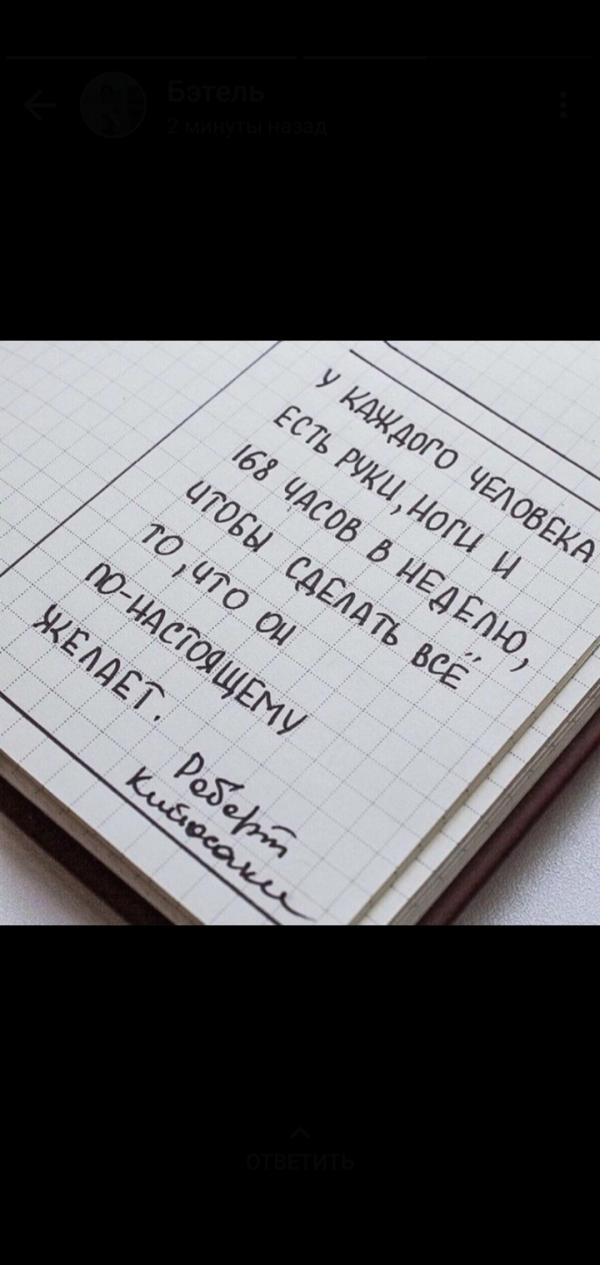 Бэтель
2 минуты назад
У КАЖДОГО ЧЕЛОВЕКА
ЕСТЬ РУКИ, НОГИ И
168 ЧАСОВ В НЕДЕЛЮ,
ЧТОБЫ СДЕЛАТЬ ВСЁ
ТО, ЧТО ОН
ПО-НАСТОЯЩЕМУ
ЖЕЛАЕТ.
Роберт
Кийосаки
ОТВЕТИТЬ